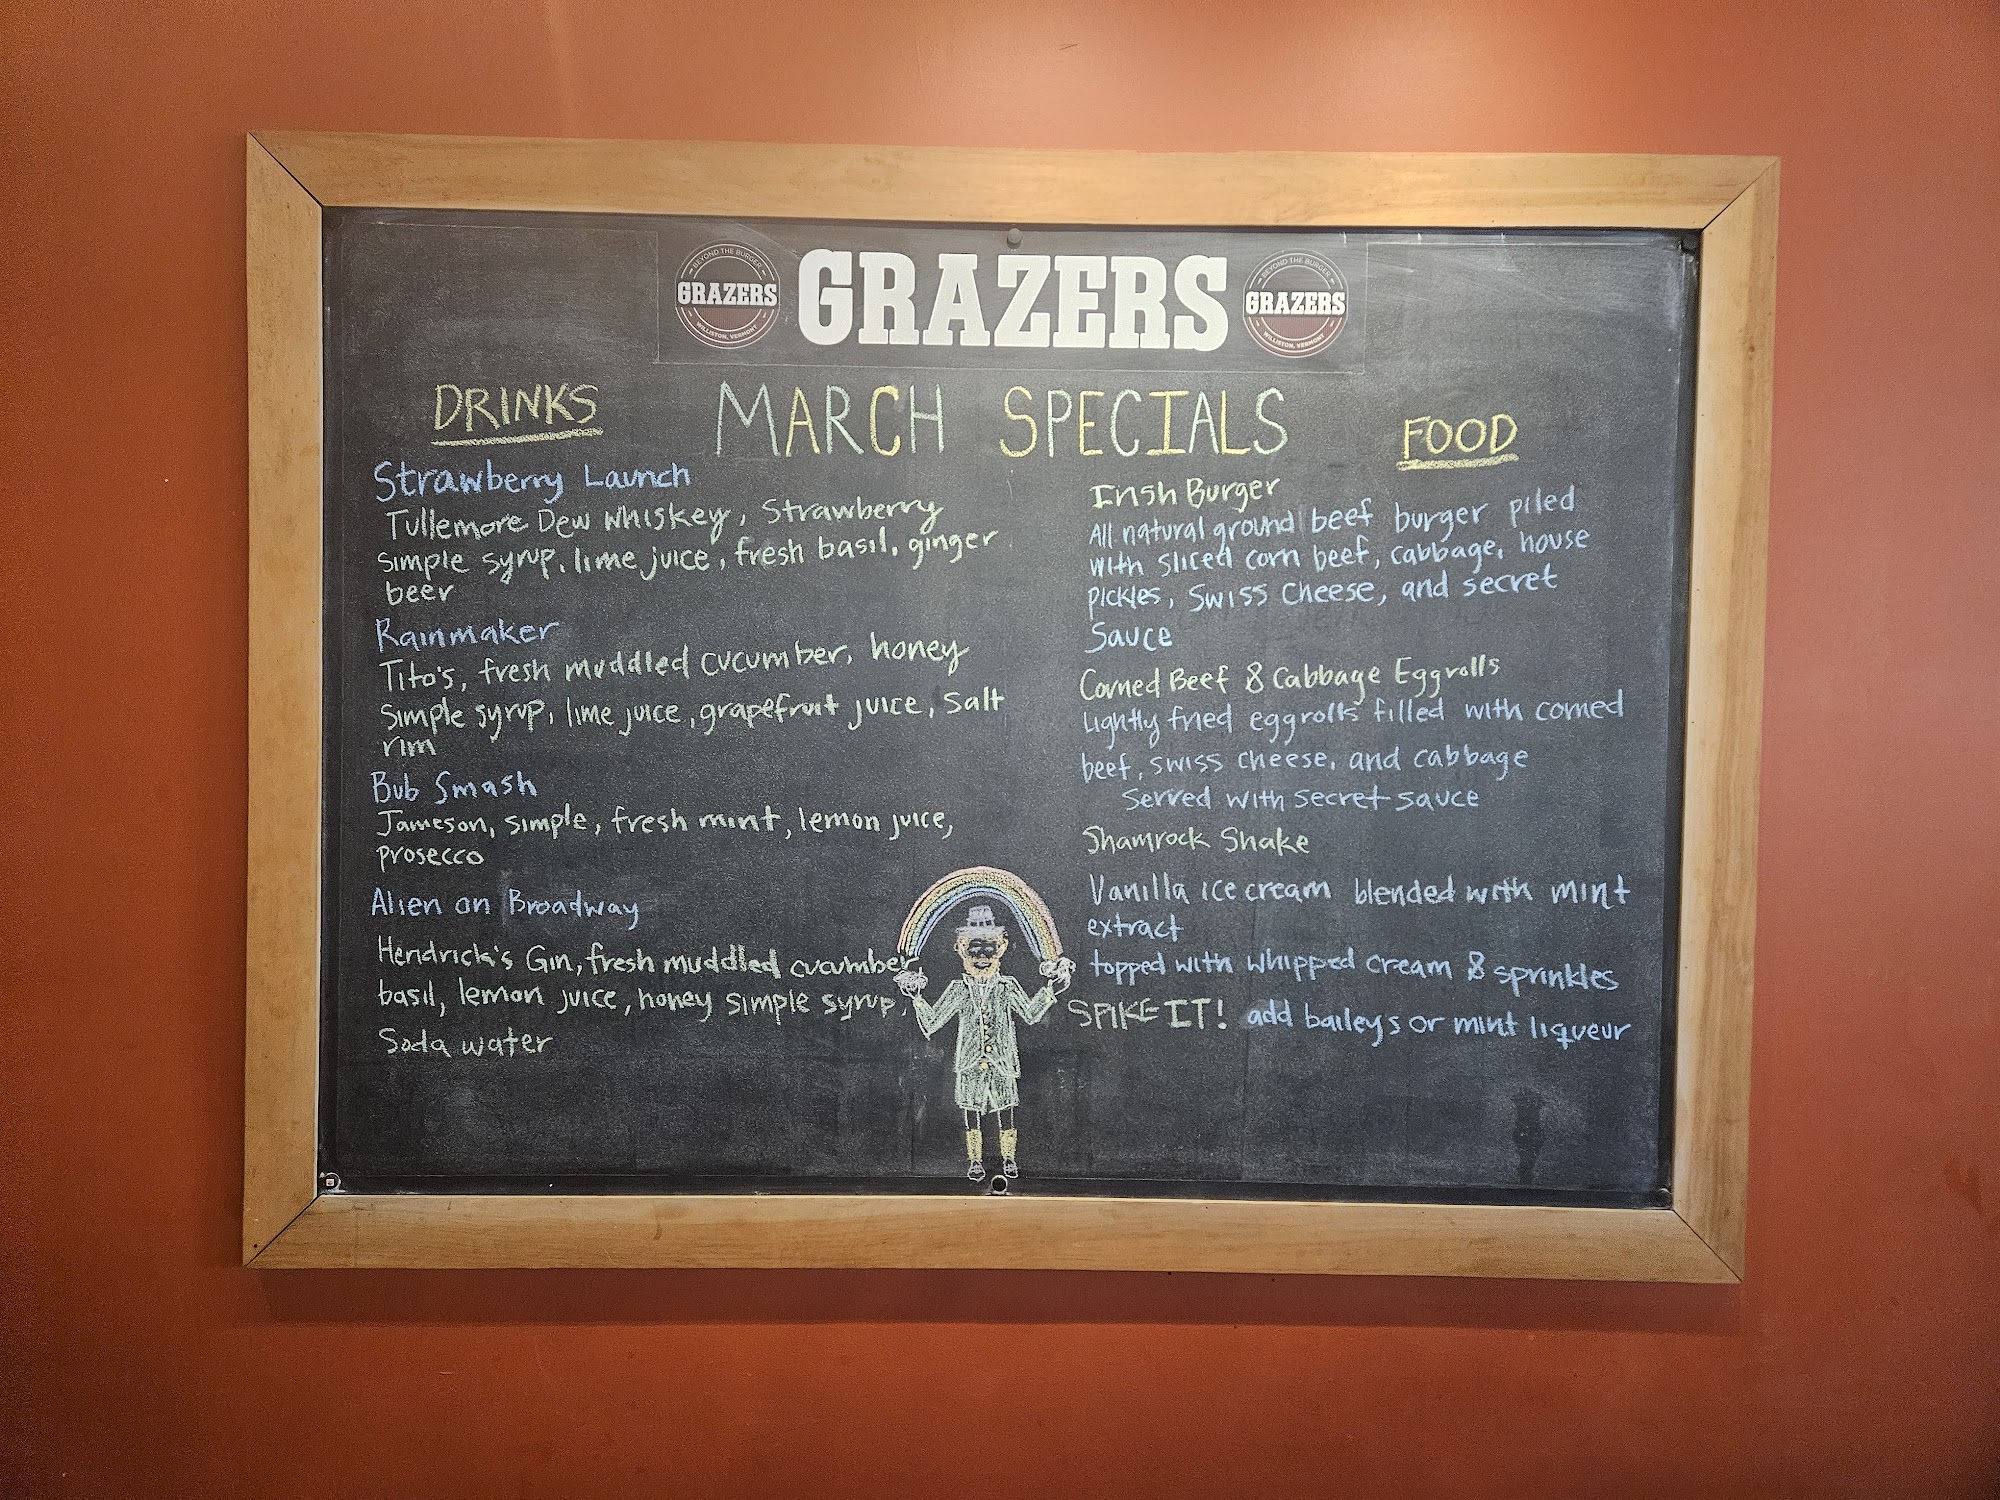 BEYOND THE BURGER
GRAZERS
WILLISTON, VERMONT
GRAZERS
BEYOND THE BURGER
GRAZERS
WILLISTON, VERMONT
MARCH SPECIALS
DRINKS
Strawberry Launch
Tullemore Dew Whiskey, Strawberry
simple syrup, lime juice, fresh basil, ginger
beer
Rainmaker
Tito's, fresh muddled cucumber, honey
simple syrup, lime juice, grapefruit juice, salt
rim
Bub Smash
Jameson, simple, fresh mint, lemon juice,
prosecco
Alien on Broadway
Hendrick's Gin, fresh muddled cucumber
basil, lemon juice, honey simple syrup,
Soda water
FOOD
Irish Burger
All natural ground beef burger piled
with sliced corn beef, cabbage, house
pickles, Swiss Cheese, and secret
Sauce
Corned Beef & Cabbage Eggrolls
Lightly fried eggrolls filled with corned
beef, swiss cheese, and cabbage
Served with secret sauce
Shamrock Shake
Vanilla ice cream blended with mint
extract
topped with whipped cream & sprinkles
SPIKE IT! add baileys or mint liqueur